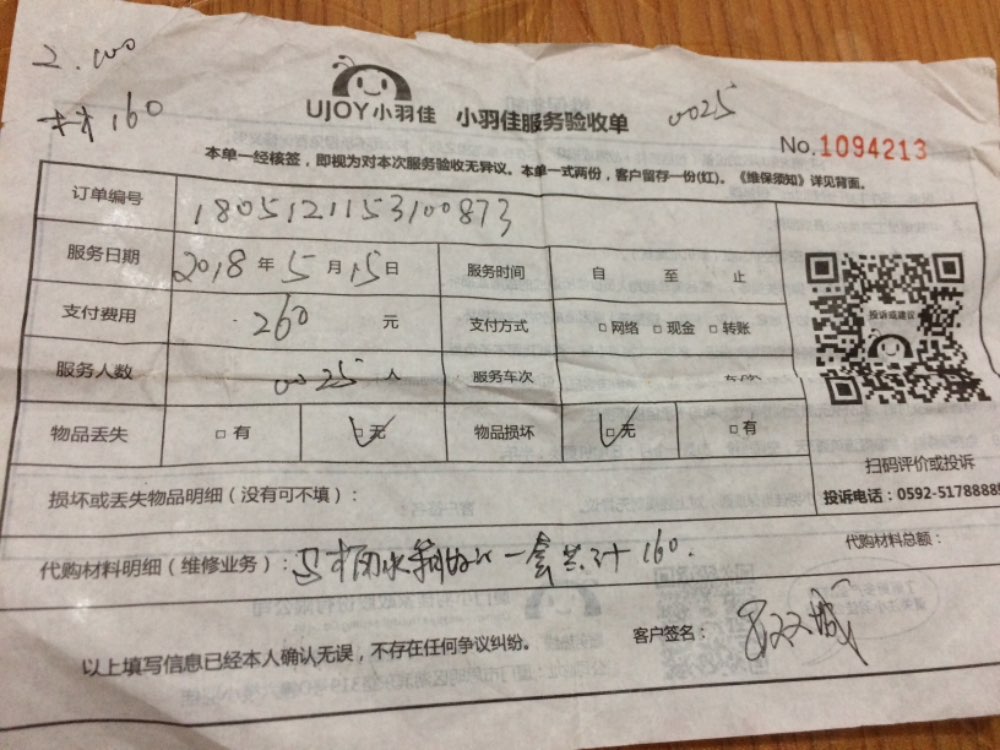 2.000
160
UJOY小羽佳 小羽佳服务验收单
0025
No.1094213
本单一经核签,即视为对本次服务验收无异议。本单一式两份,客户留存一份(红)。《维保须知》详见背面。
订单编号 1805121153100873
服务日期 2018年5月15日 服务时间 自 至 止
支付费用 260 元 支付方式 □网络 □现金 □转账
投诉或建议
服务人数 0025人 服务车次
物品丢失 □有 □无 物品损坏 □无 □有
扫码评价或投诉
损坏或丢失物品明细(没有可不填):
投诉电话:0592-5178888
代购材料明细(维修业务): 一套共计160.
代购材料总额:
以上填写信息已经本人确认无误,不存在任何争议纠纷。 客户签名: